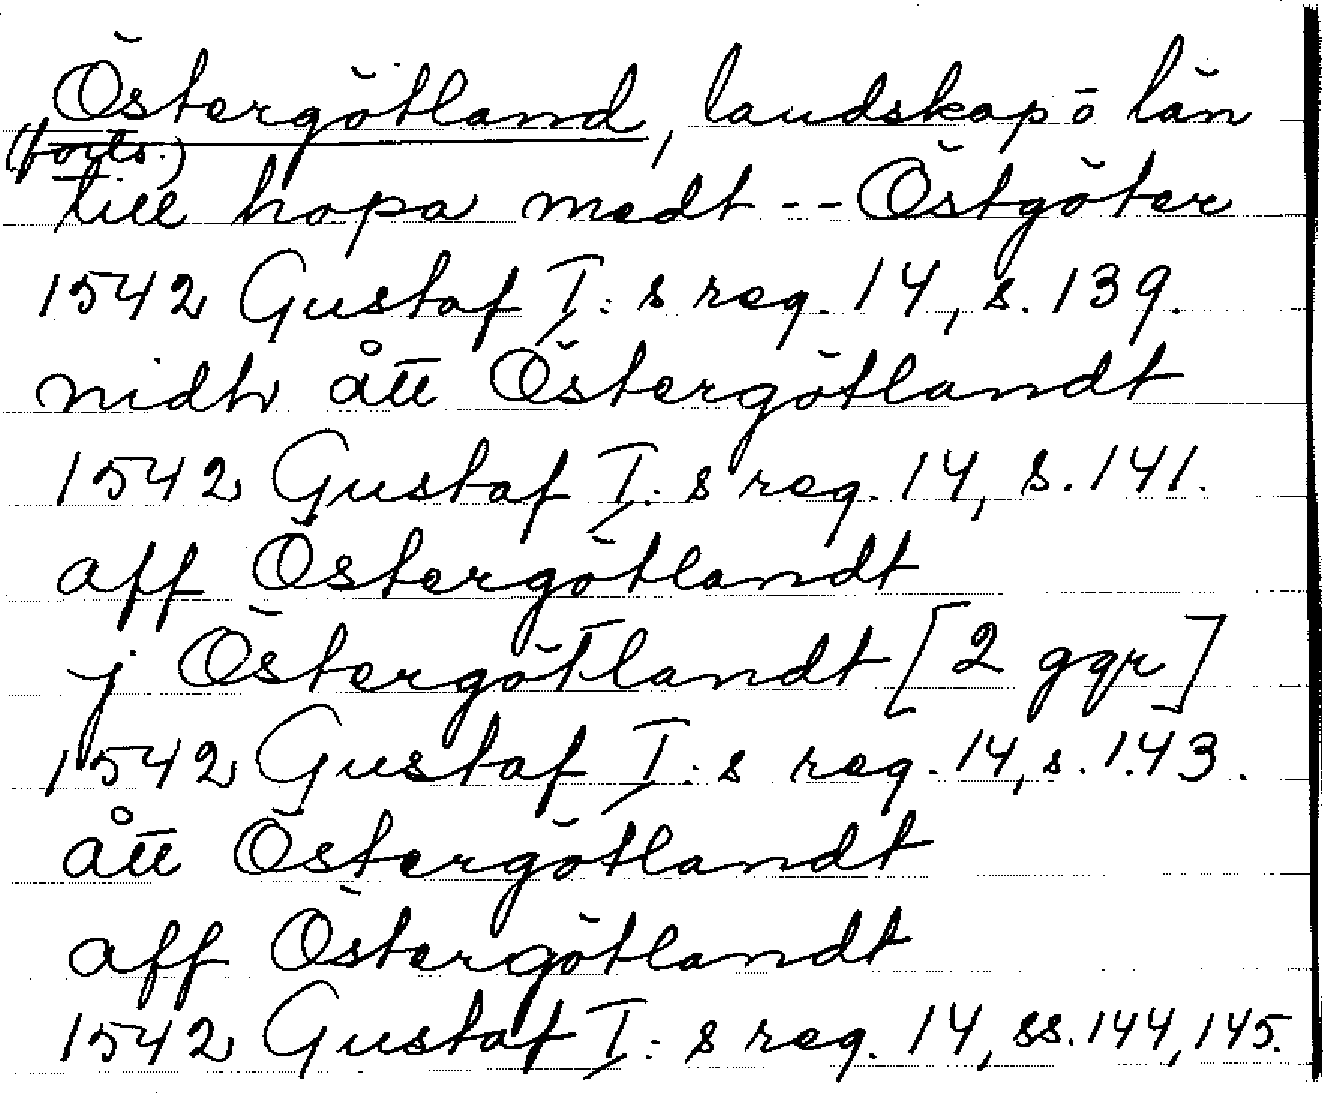 Östergötland, landskap o län
(forts.)
till hopa medt -- Östgöter
1542 Gustaf I:s reg. 14, s. 139.
nidh ått Östergötlandt
1542 Gustaf I:s reg. 14, s. 141.
aff Östergötlandt
j Östergötlandt [2 ggr]
1542 Gustaf I:s reg. 14, s. 143.
ått Östergötlandt
aff Östergötlandt
1542 Gustaf I:s reg. 14, ss. 144, 145.